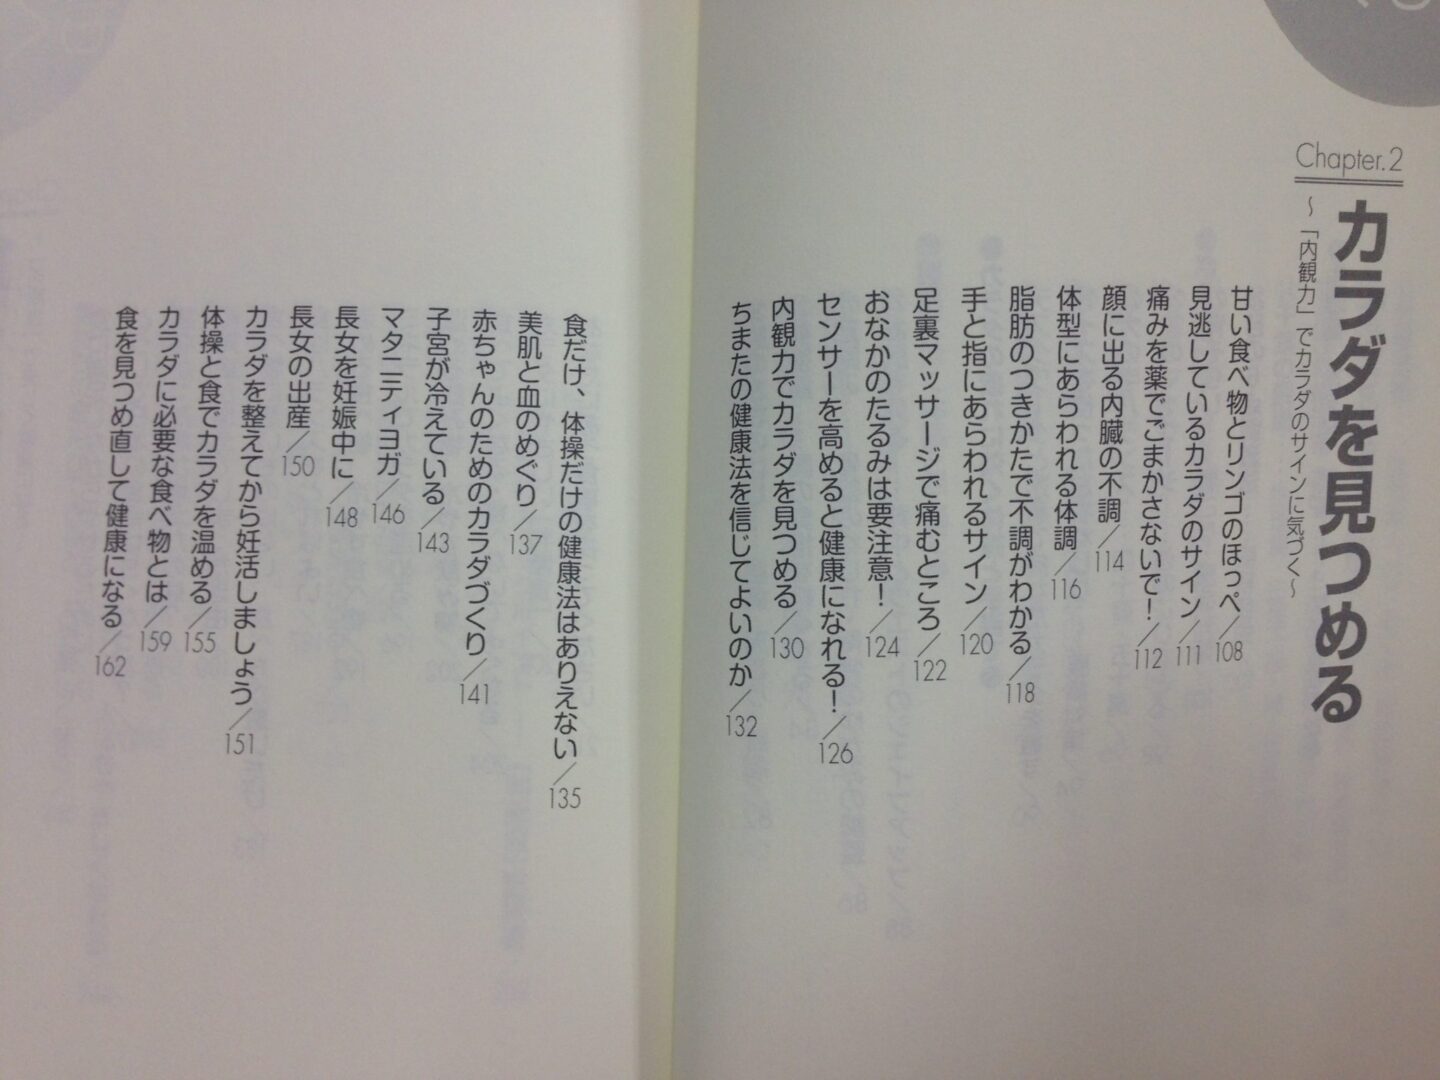 Chapter.2
カラダを見つめる
〜「内観力」でカラダのサインに気づく〜
甘い食べ物とリンゴのほっぺ／108
見逃しているカラダのサイン／111
痛みを薬でごまかさないで！／112
顔に出る内臓の不調／114
体型にあらわれる体調／116
脂肪のつきかたで不調がわかる／118
手と指にあらわれるサイン／120
足裏マッサージで痛むところ／122
おなかのたるみは要注意！／124
センサーを高めると健康になれる！／126
内観力でカラダを見つめる／130
ちまたの健康法を信じてよいのか／132
食だけ、体操だけの健康法はありえない／135
美肌と血のめぐり／137
赤ちゃんのためのカラダづくり／141
子宮が冷えている／143
マタニティヨガ／146
長女を妊娠中に／148
長女の出産／150
カラダを整えてから妊活しましょう／151
体操と食でカラダを温める／155
カラダに必要な食べ物とは／159
食を見つめ直して健康になる／162